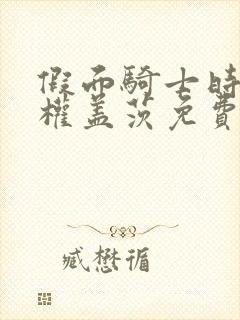 假面騎士時
權蓋茨免費
臧懋循